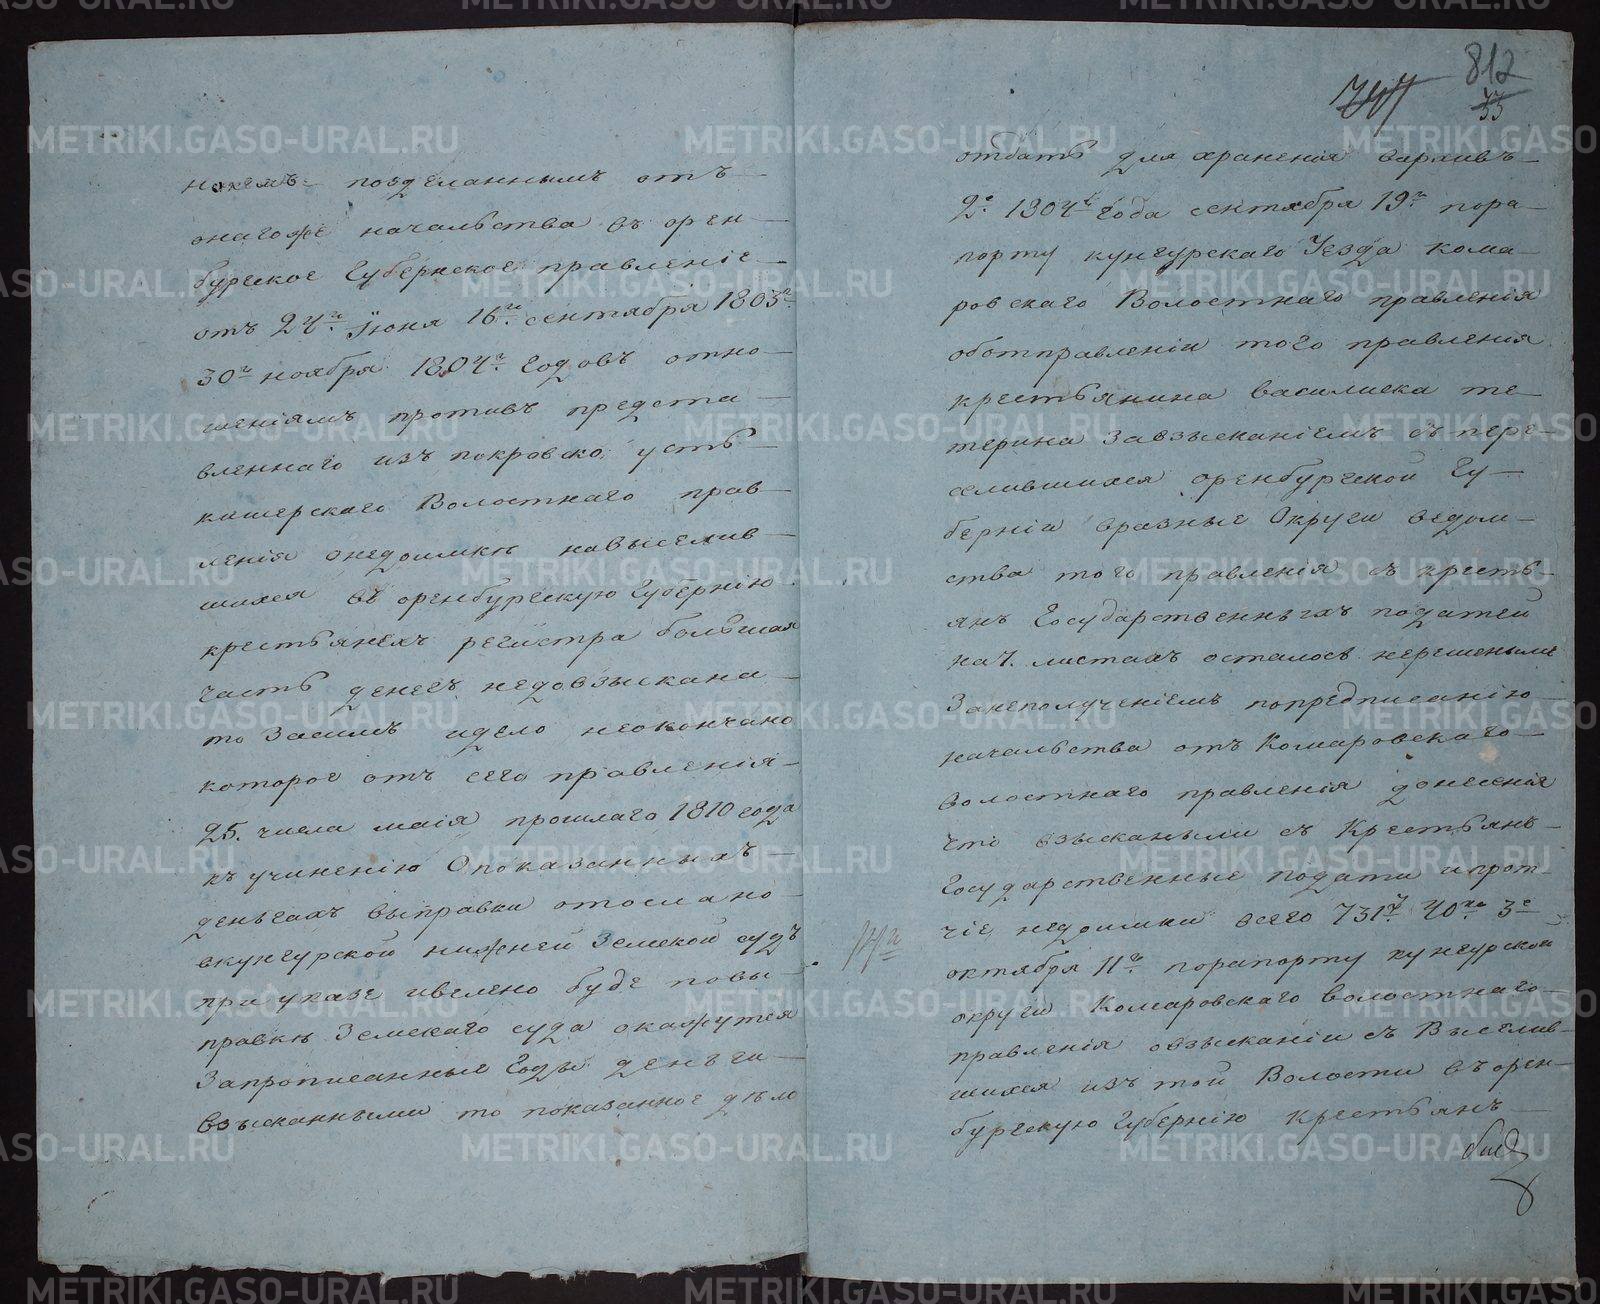 нахемъ поздѣланнымъ отъ
онагоже начальства въ орен
бургское Губернское правленіе
отъ 24го Іюня 16го сентября 1803го
30го ноября 1804го Годовъ отно
шеніямъ противъ предста
вленнаго изъ покровско усть
кишерскаго Волостнаго прав
ленія онедоимкѣ навыселив
шихся въ оренбургскую Губернію
крестьянехъ регистра большая
часть денегъ недовзыскана
то Засимъ идело неокончано
которое отъ сего правленія
25. числа маія прошлаго 1810 года
къ учиненію Опоказанныхъ
деньгахъ выправки отослано
вкунгурской нижней Земской судъ
при указе ивелено буде повы
правкѣ Земскаго суда окажутся
Запрописанные Годы деньги
взысканными то показанное дѣло
812
33
отдать для храненія вархивъ
2е. 1804го Года сентября 19го пора
порту кунгурскаго Уезда кома
ровскаго Волостнаго правленія
оботправленіи того правленія
крестьянина василиска те
терина Завзысканіемъ съ пере
селившихся оренбургской Гу
берніи вразные Округи ведом
ства того правленія съ кресть
янъ Государственныхъ податей
на 7. листахъ осталось нерешеным
Занеполученіемъ попредписанію
начальства отъ Комаровскаго
волостнаго правленія донесенія
что взысканыли съ Крестьянъ
Государственные подати ипрот
чіе недоимки всего 731р 40ко 3е
октября 11го порапорту кунгурской
округи Комаровскаго волостнаго
правленія овзысканіи съ Выселив
шихся изъ той Волости въ орен
бургскую Губернію крестьянъ
METRIKI.GASO-URAL.RU